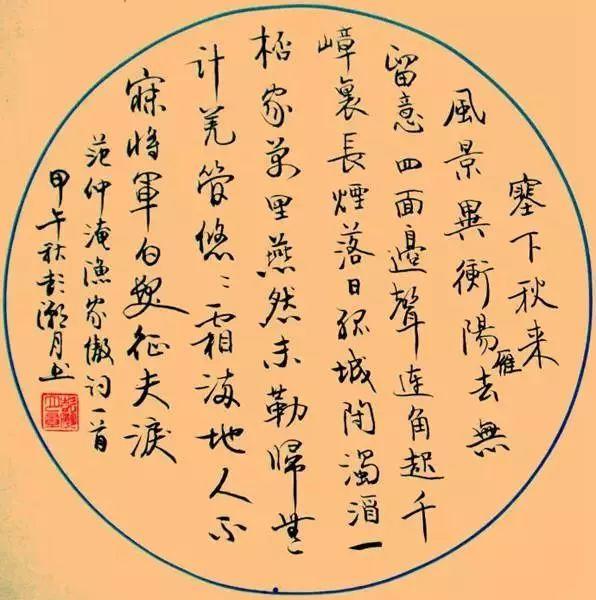 塞下秋来
風景異衡陽雁去無
留意四面邊聲連角起千
嶂裏長煙落日孤城閉濁酒一
桮家萬里燕然未勒歸無
計羌管悠〻霜滿地人不
寐將軍白髮征夫淚
范仲淹漁家傲詞一首
甲午秋彭月书